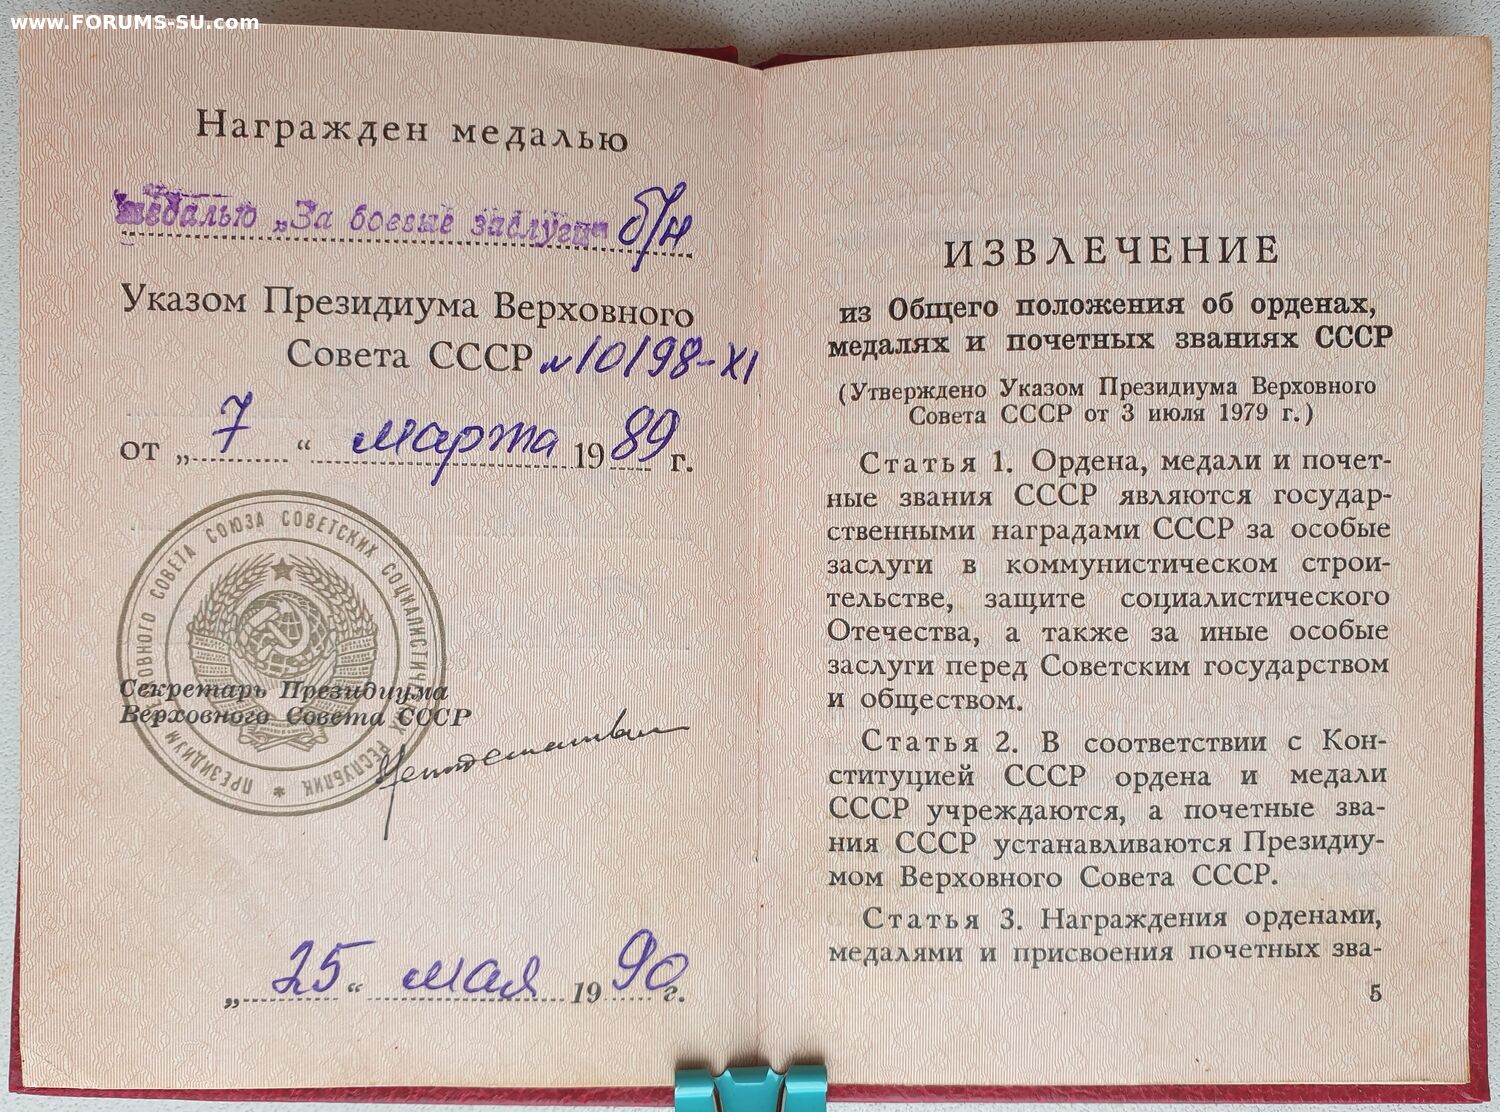 www.FORUMS-SU.com
Награжден медалью
медалью „За боевые заслуги“ б/н
Указом Президиума Верховного
Совета СССР № 10198-XI
от „7“ марта 1989 г.
ПРЕЗИДИУМ ВЕРХОВНОГО СОВЕТА СОЮЗА СОВЕТСКИХ СОЦИАЛИСТИЧЕСКИХ РЕСПУБЛИК *
Секретарь Президиума
Верховного Совета СССР
„25“ мая 1990 г.
ИЗВЛЕЧЕНИЕ
из Общего положения об орденах,
медалях и почетных званиях СССР
(Утверждено Указом Президиума Верховного
Совета СССР от 3 июля 1979 г.)
Статья 1. Ордена, медали и почет-
ные звания СССР являются государ-
ственными наградами СССР за особые
заслуги в коммунистическом строи-
тельстве, защите социалистического
Отечества, а также за иные особые
заслуги перед Советским государством
и обществом.
Статья 2. В соответствии с Кон-
ституцией СССР ордена и медали
СССР учреждаются, а почетные зва-
ния СССР устанавливаются Президиу-
мом Верховного Совета СССР.
Статья 3. Награждения орденами,
медалями и присвоения почетных зва-
5